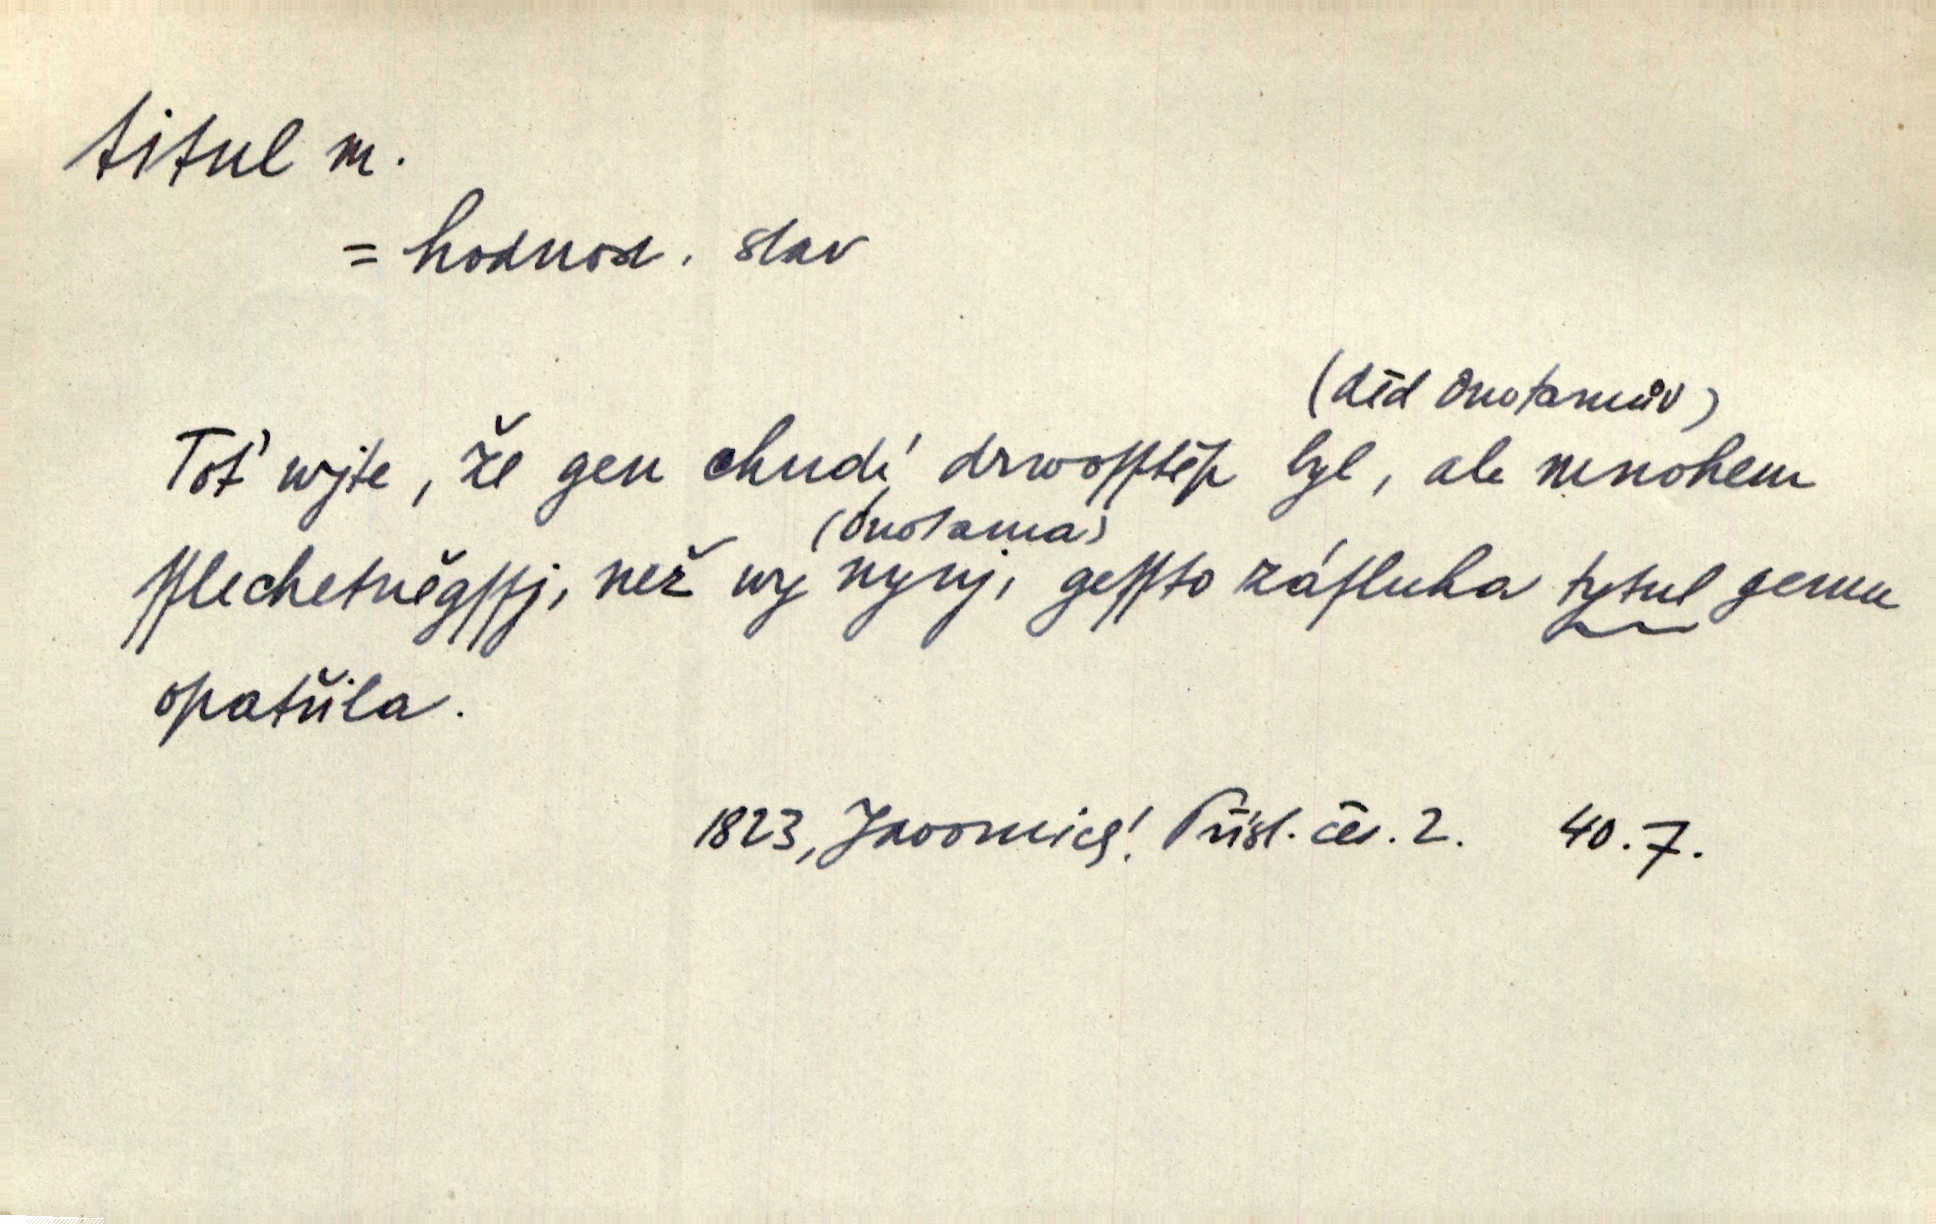 titul m.
= hodnod. slav
(děd Onotamův)
Toť wjte, že gen chudí drwoſſtěp byl, ale mnohem
(Onotama)
ſſlechetněgſſj, než wy nynj, geſſto záſluha tytul gemu
opatřila.
1823, Javornický Přísl. čes. 2. 40.7.